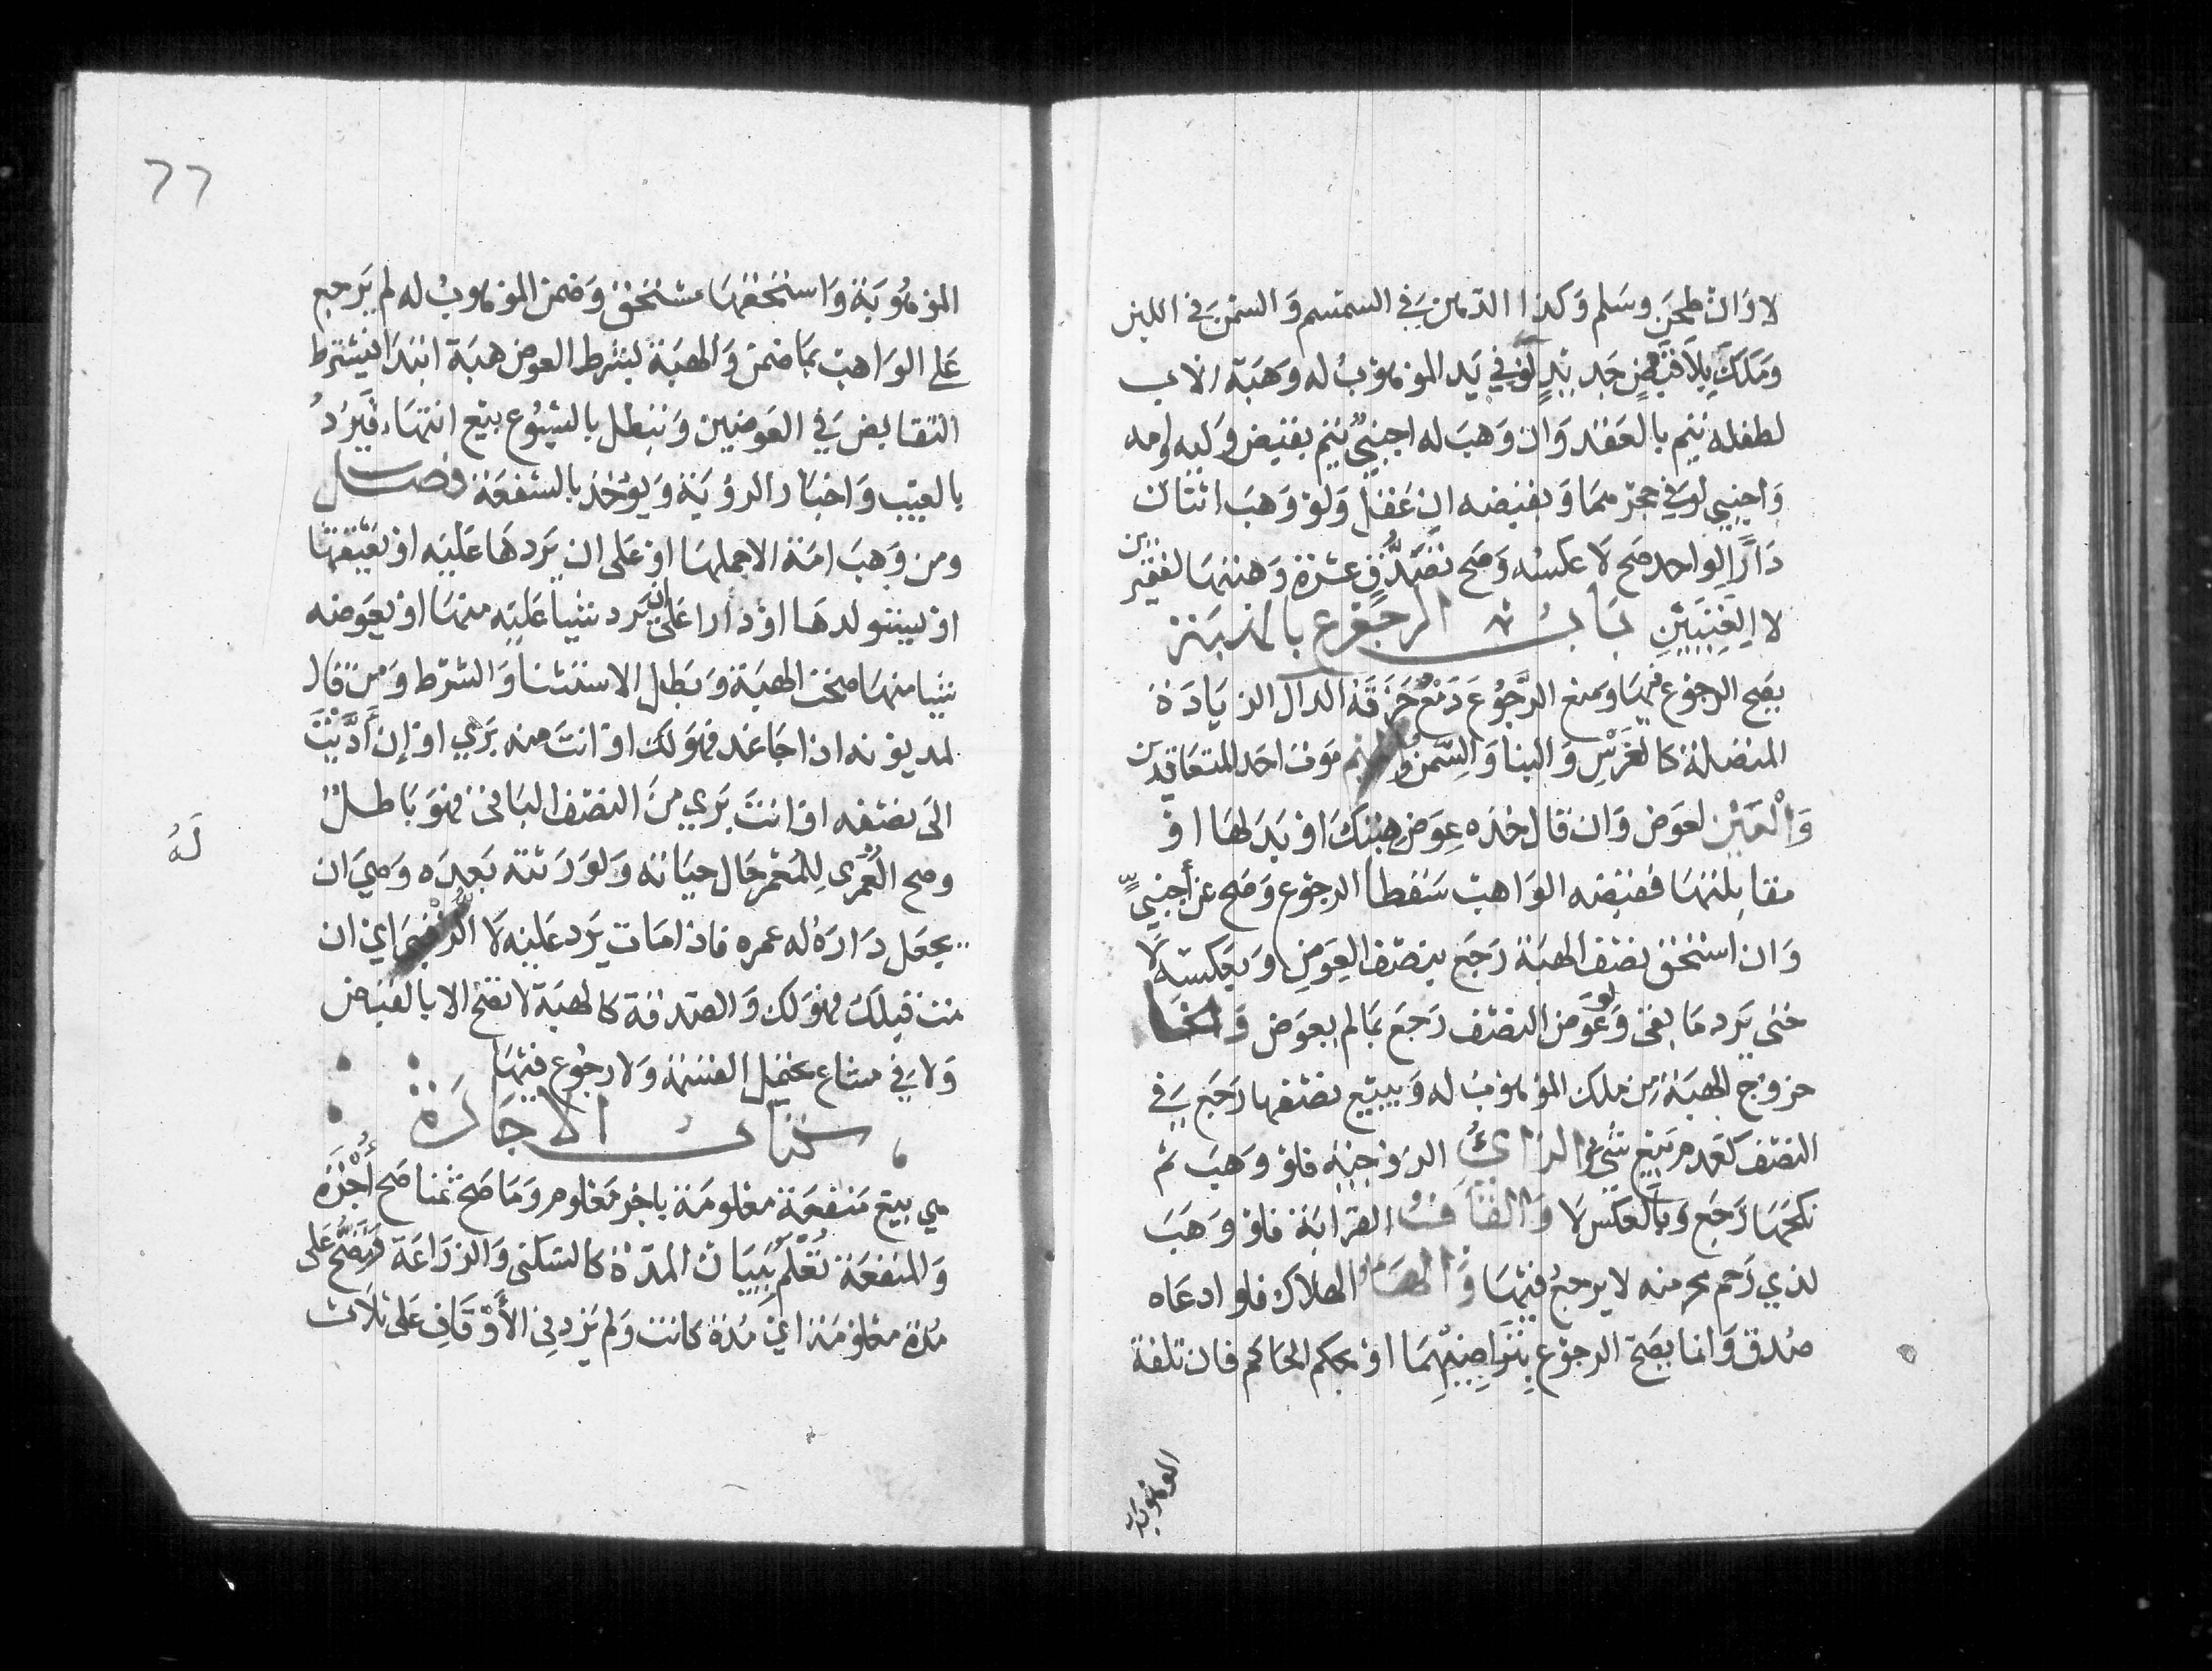 لا وَان طحَنَ وسَلم وَكذا الدهن في السمسم وَالسمن في اللبن
وَملك بِلا قبضٍ جَديدٍ لو في يَد الموهوبُ له وَهبَة الاب
لطفله تتم بالعَقد وَان وَهبَ له اجنبيٌّ تتم بقبض وَليه وامه
وَاجنبي لو في حجرهما وَبقبضه ان عَقل وَلو وَهبَ اثنان
دَارًا لِواحد صَح لا عكسُه وَصَح تصَدُّق عشرة وَهبتها لفقيرين
لا لِغنيينِ بَابُ الرجوع بالهبَة
يصَح الرجوع فيهَا وَيمنع الرُّجُوعَ دَمْعٌ خَزَقَهْ الدال الزيَادَة
المتصلة كالغَرْسِ وَالبنا وَالسِّمَن وَالميم مَوت احَد المتعَاقدين
وَالْعَيْن لعوَض وَان قال خذه عِوَض هبتكَ او بَدَلهَا او
مقابلتهَا فقبضه الوَاهبَ سَقط الرجوع وَصَح عن أجنبيٍّ
وَان استحق نصف الهبَة رَجَع بنصف العِوَضِ وَبعَكسه لا
حتى يَرد مَا بقى وَلو عَوض النصف رَجَعَ بمَا لم يعوض وَالخا
خروج الهبَة مِن ملك الموهوبُ له وَببَيع نصفها رَجَع في
النصف كعَدم بَيع شيء وَالزايُ الزوجيَّه فلو وهبَ ثم
نكحهَا رَجَع وَبالعكس لا وَالقاف القرابَة فلو وَهَبَ
لذي رَحم محرم منه لا يرجع فيهَا وَالهاء الهلاك فلو ادعَاه
صُدق وَانما يصَح الرجوع بِتَراضِيْهِمَا او بحكم الحَاكم فان تلفة
الموهوبَة
٦٦
الموهُوبَة وَاستحقهَا مستحق وَضمن الموهوبُ له لم يَرجع
عَلى الوَاهب بمَا ضمن وَالهبَة بشرط العوض هبَة ابتدَا فيشترط
التقابض في العَوضين وَتبطل بالشيُوع بيع انتهَاء فيُرَدُّ
بالعيب وَاخيار الرؤيَة وَيوُخذ بالشفعَة فصـــل
ومن وَهبَ امَة الا حملهَا او عَلى ان يَردهَا عَليه او يعتقهَا
او يستولدهَا او دَارا عَلى ان يَرد شيئا عَليَه منهَا او يعَوضه
شيئا منهَا صحت الهبَة وَبَطل الاستثنا وَالشرط وَمَن قال
لمديونه اذا جَا غد فهوَ لك او انتَ منه بَري او إن أَدَّيْتَ
الى نصفه او انتَ بَري منَ النصف الباقى فهوَ بَاطـل
وصح العُمْرَى لِلمُعمر حَال حيَاته وَلوَرَثته بَعدَه وَهيَ ان
يجعَل دَارَهُ له عمره فاذا مَات يرَد عَليْه لا الرقبَى اي ان
مت قبلكَ فهوَ لك وَالصدقة كالهبَة لا تصح الا بالقبض
وَلا في مشاع يحتمل القسمَة وَلا رجُوع فيهَا
كتابُ الاجَارَة
هي بيع مَنفعَة مَعلومَة باجر مَعْلوم وَمَا صَحَّ ثمنا صَح أُجْرَة
وَالمنفعَة تُعْلَم بِبيَان المدَّة كالسكنى وَالزرَاعَة فتصِحُّ عَلى
مُدة معلومَة ايَ مُدة كانت وَلم يَزد فِي الأَوْقَافِ عَلى ثلَاث
لَهُ